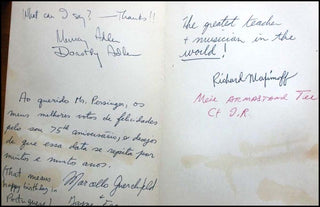 What can I say? — Thanks!!
Murray Adler
Dorothy Adler
Ao querido Mr. Persinger, os
meus melhores votos de felicidades
pelo seu 75th aniversário, e desejos
de que essa data se repita por
muitos e muitos anos.
(That means
happy birthday in
Portuguese!)
Marcello
The greatest teacher
+ musician in the
world!
Richard